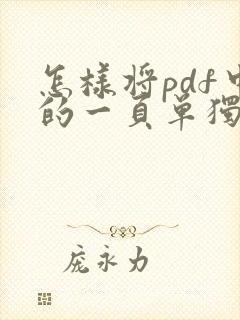 怎樣将pdf中
的一頁單獨
庞永力